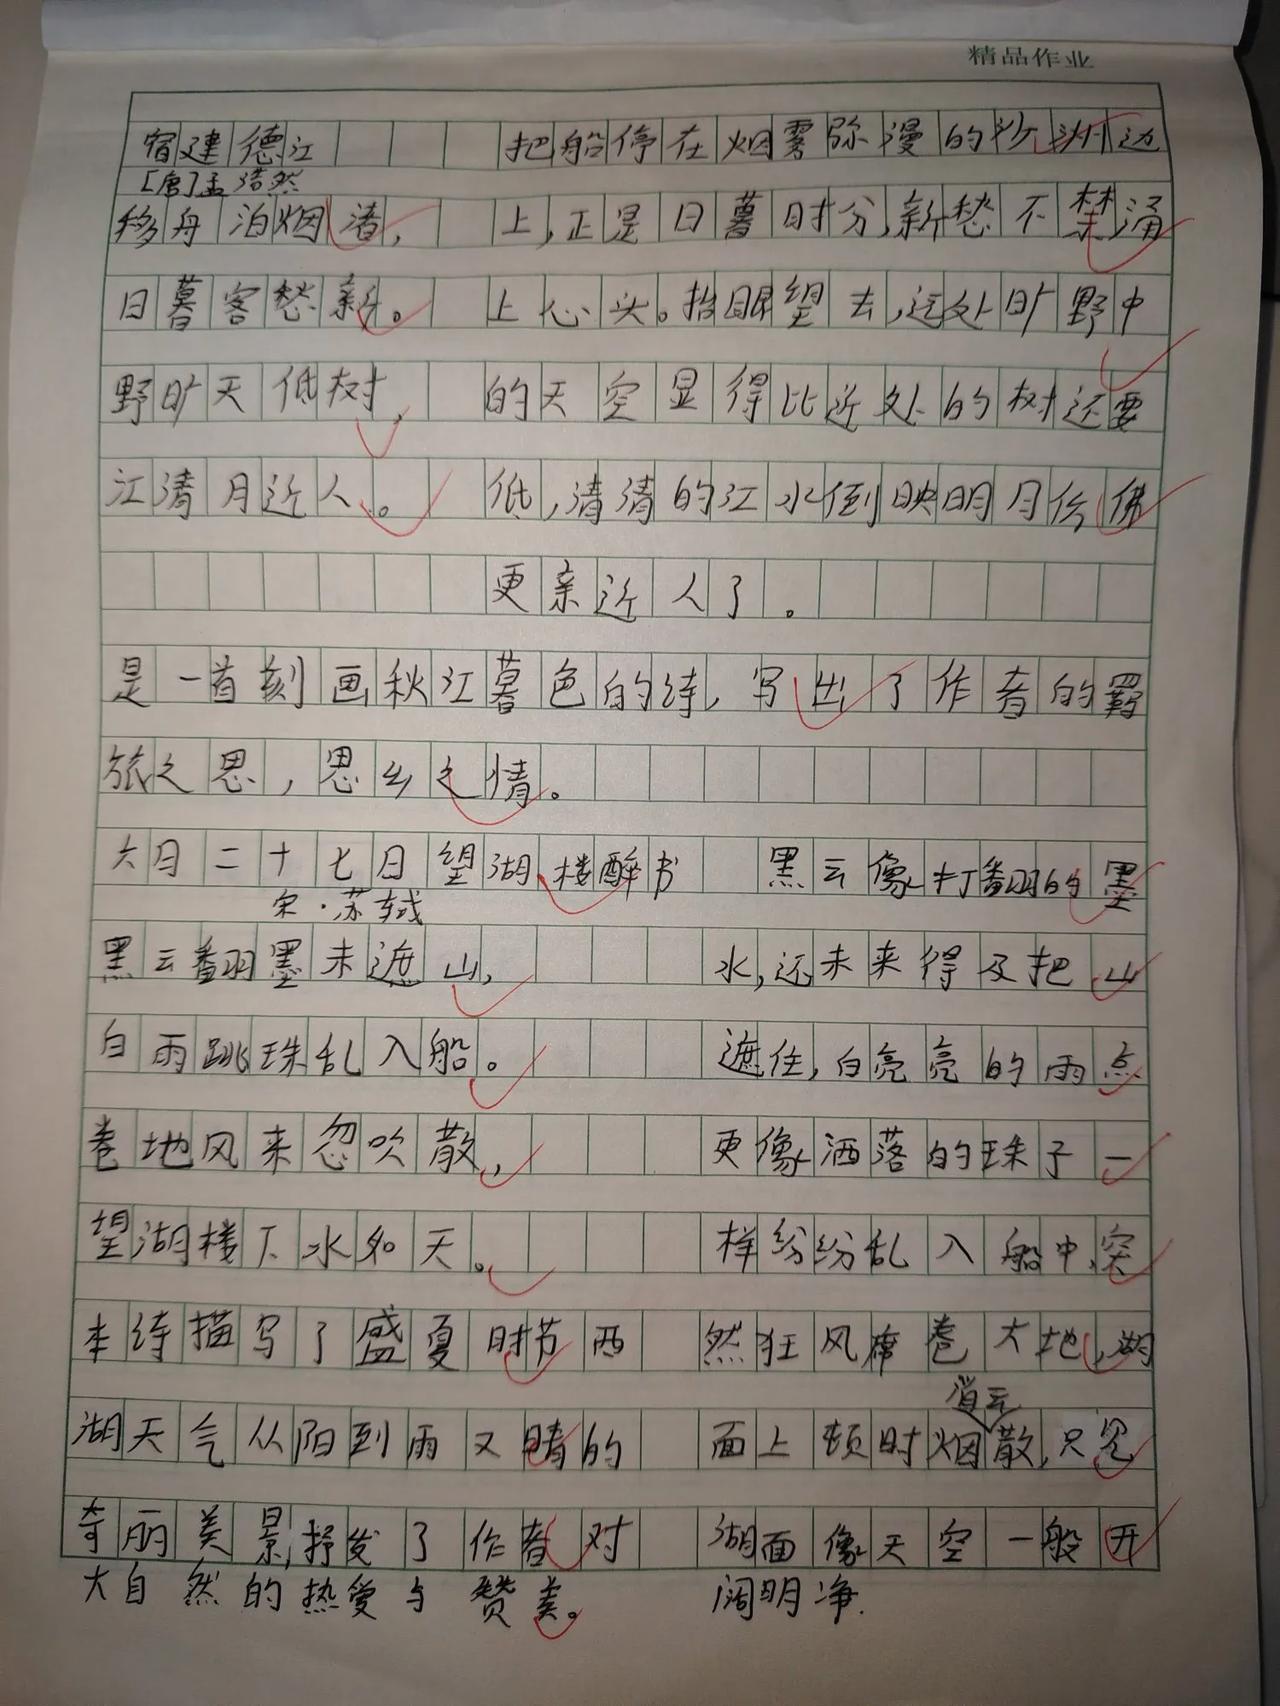 精品作业
宿建德江 把船停在烟雾弥漫的沙洲边
[唐]孟浩然
移舟泊烟渚, 上,正是日暮时分,新愁不禁涌
日暮客愁新。 上心头。抬眼望去,远处旷野中
野旷天低树, 的天空显得比近处的树还要
江清月近人。 低,清清的江水倒映明月仿佛
更亲近人了。
是一首刻画秋江暮色的诗,写出了作者的羁
旅之思,思乡之情。
六月二十七日望湖楼醉书 黑云像打翻的墨
宋·苏轼
黑云翻墨未遮山, 水,还未来得及把山
白雨跳珠乱入船。 遮住,白亮亮的雨点
卷地风来忽吹散, 更像洒落的珠子一
望湖楼下水如天。 样纷纷乱入船中,突
本诗描写了盛夏时节西 然狂风席卷大地,湖
湖天气从阳到雨又晴的 面上顿时烟消云散,只见
奇丽美景,抒发了作者对 湖面像天空一般开
大自然的热爱与赞美。 阔明净.